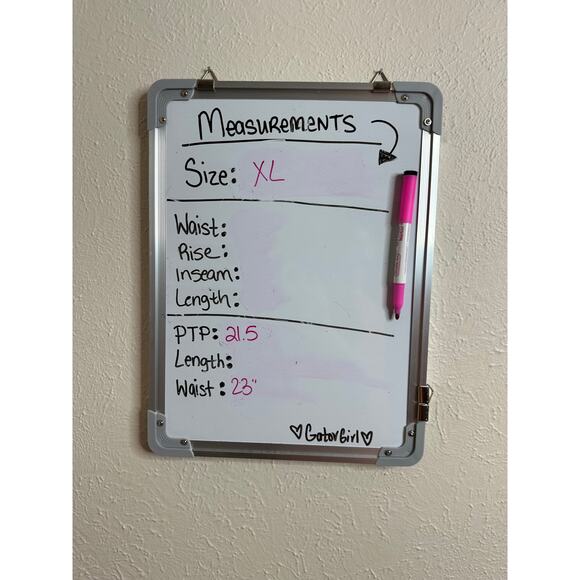 Measurements
Size: XL
Waist:
Rise:
Inseam:
Length:
PTP: 21.5
Length:
Waist: 23"
♡GatorGirl♡